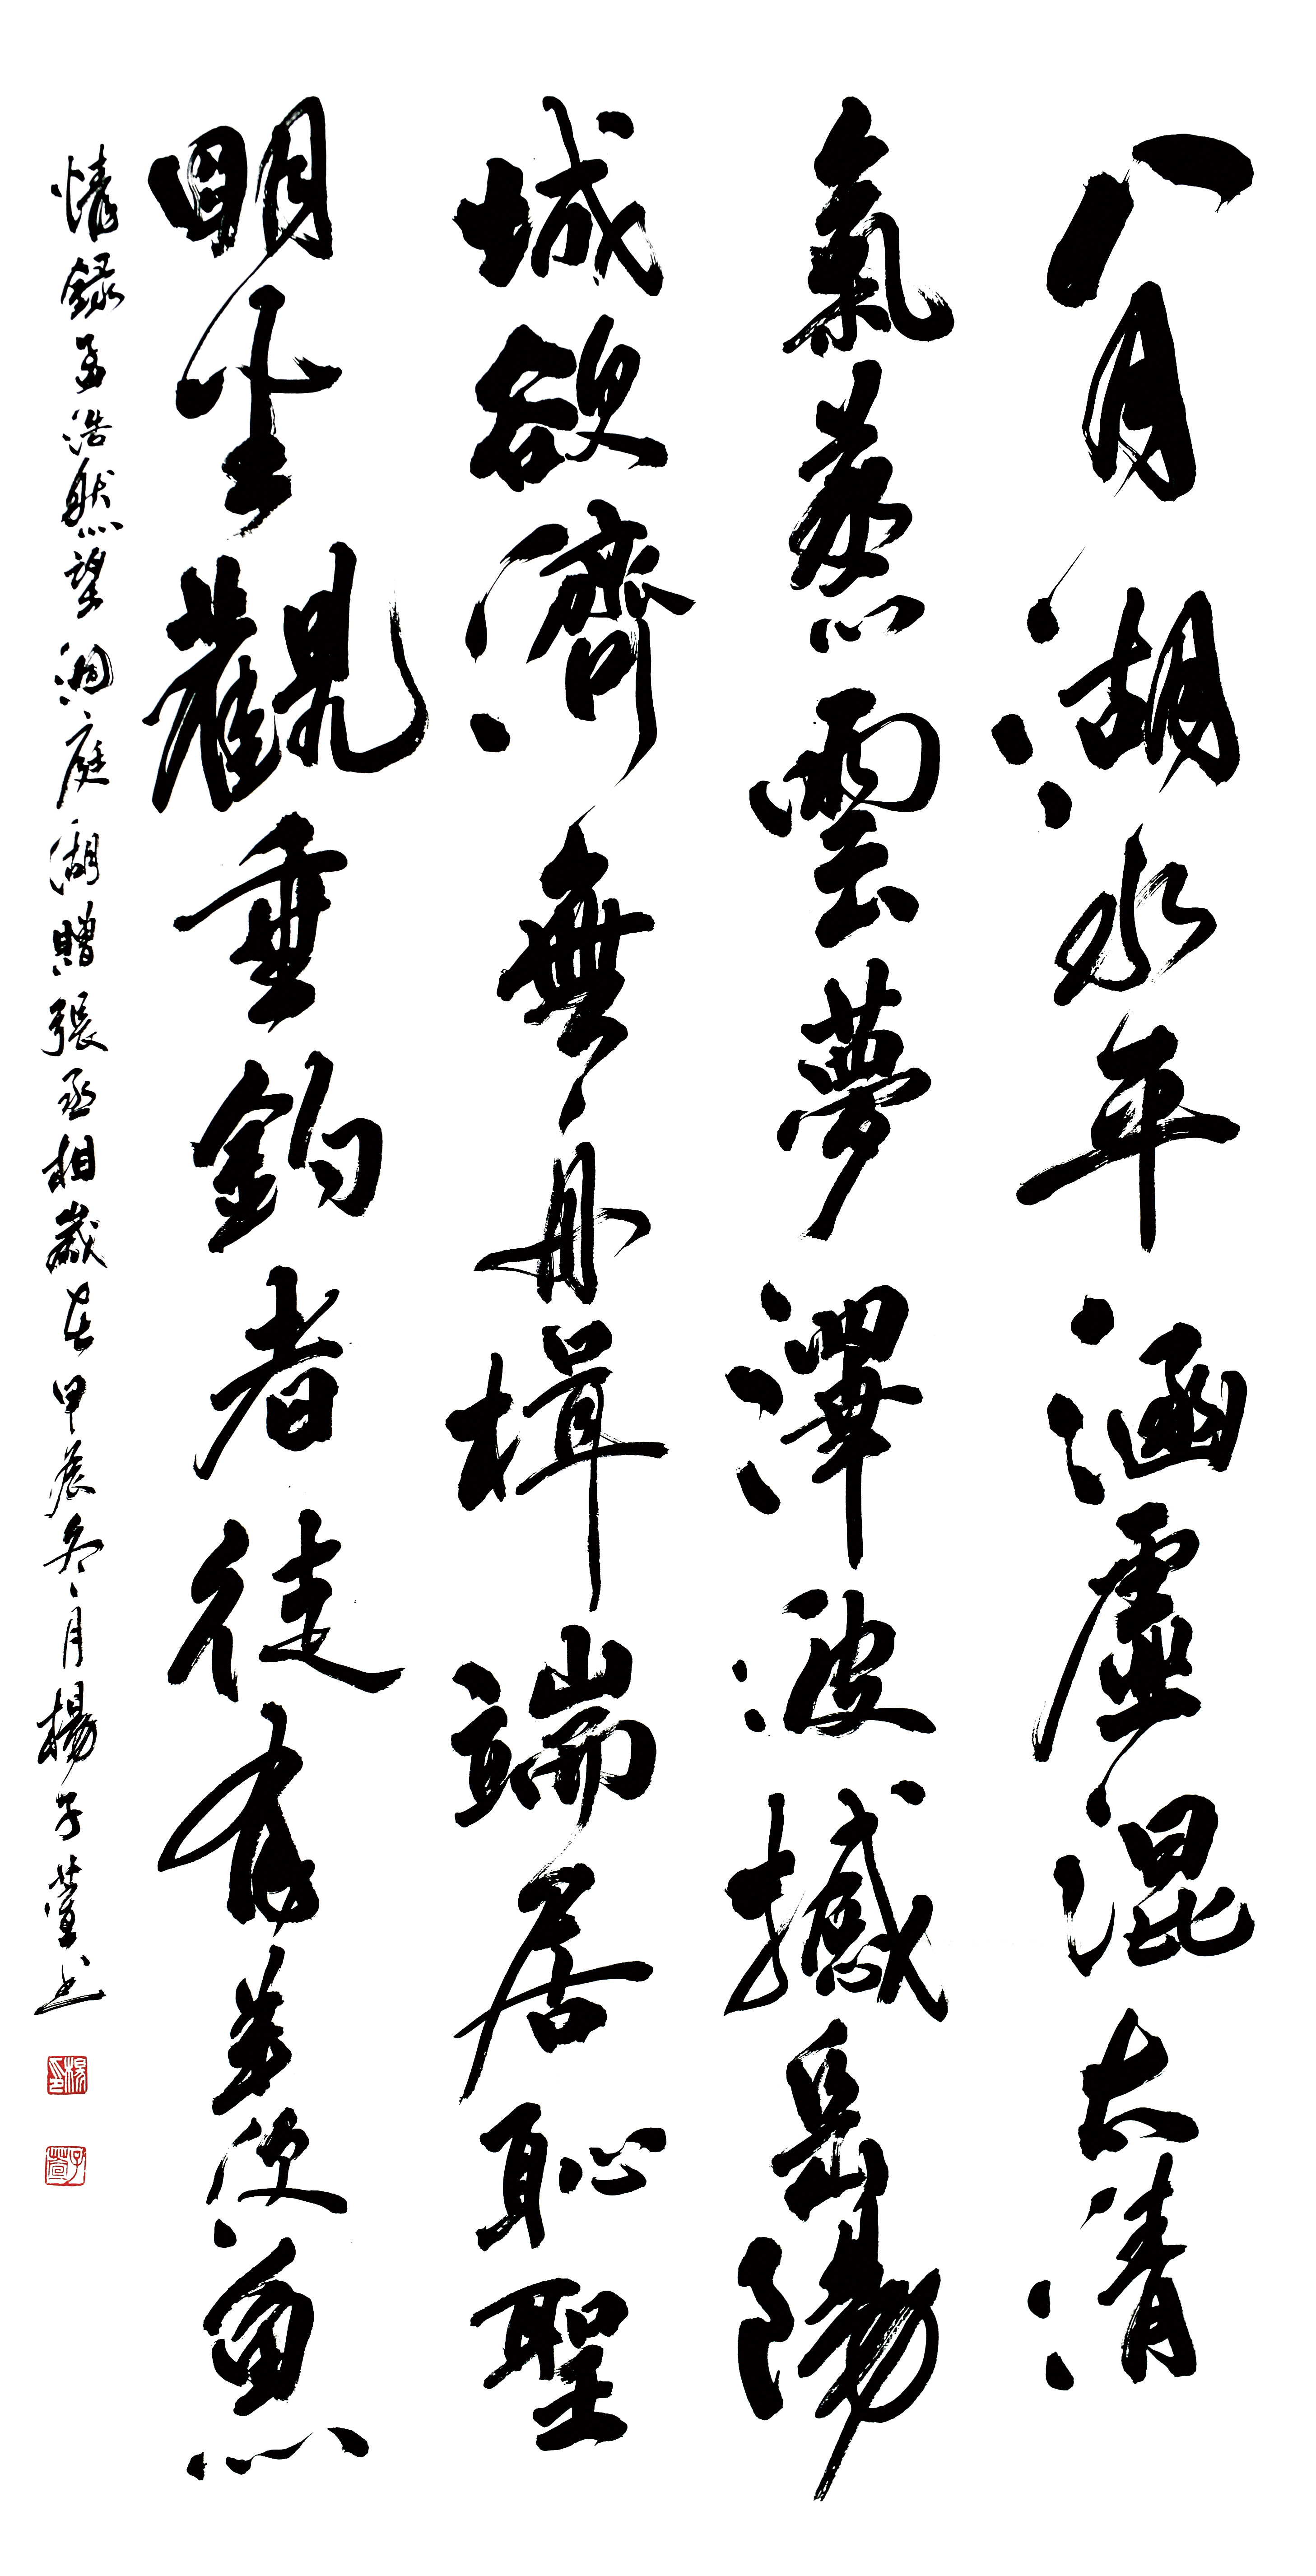 八月湖水平涵虛混太清
氣蒸雲夢澤波撼岳陽
城欲濟無舟楫端居恥聖
明坐觀垂釣者徒有羨魚
情錄孟浩然望洞庭湖贈張丞相歲在甲辰冬月楊子萱書
楊印
子萱